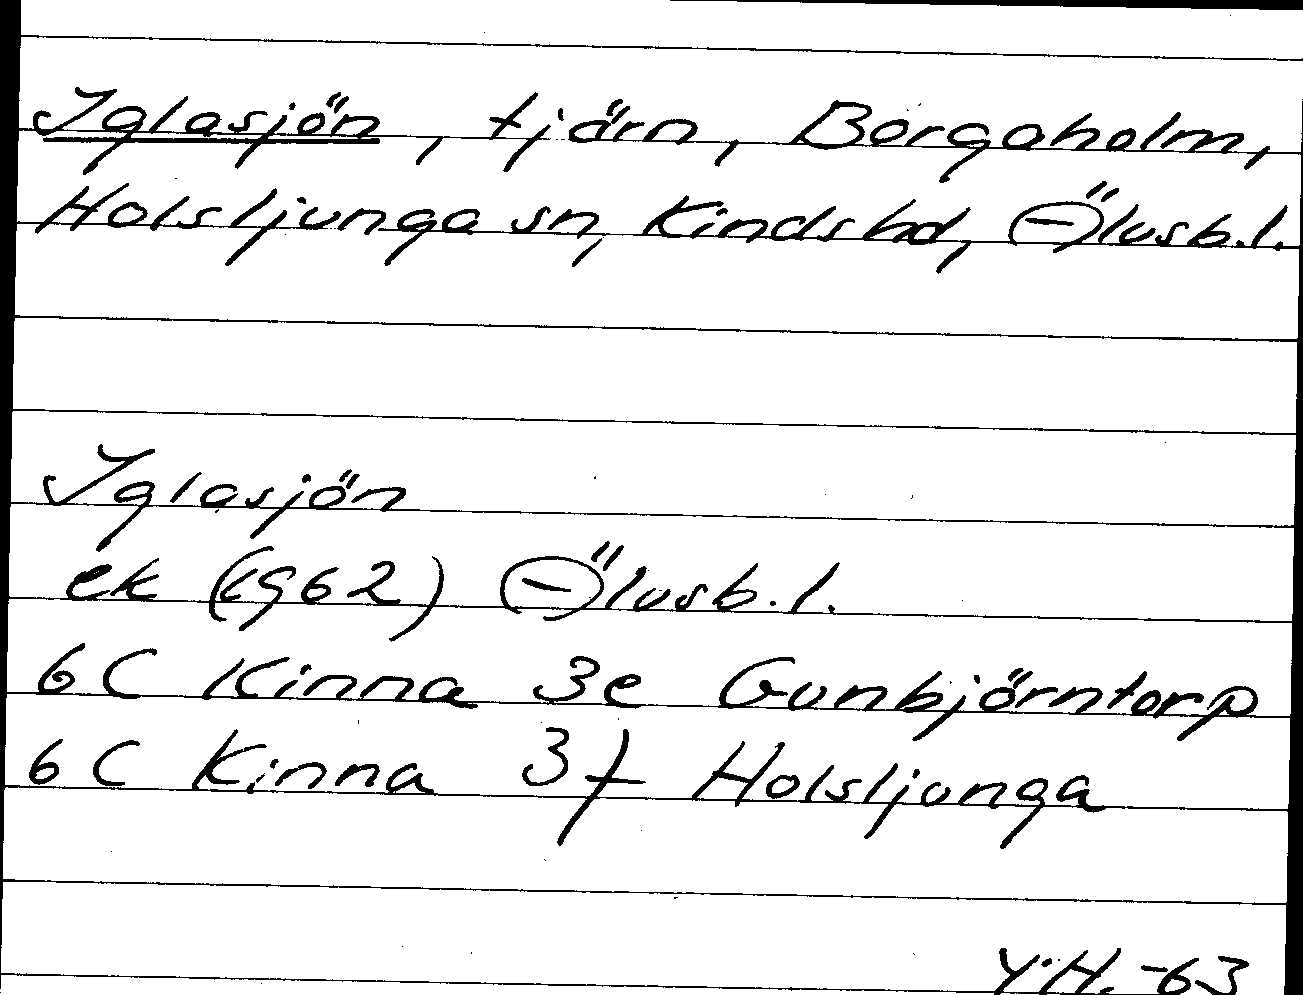 Iglasjön, tjärn, Borgaholm,
Holsljunga sn, Kinds hd, Älvsb. l.
Iglasjön
ek (1962) Älvsb. l.
6 C Kinna 3e Gunbjörntorp
6 C Kinna 3f Holsljunga
Y.H. -63